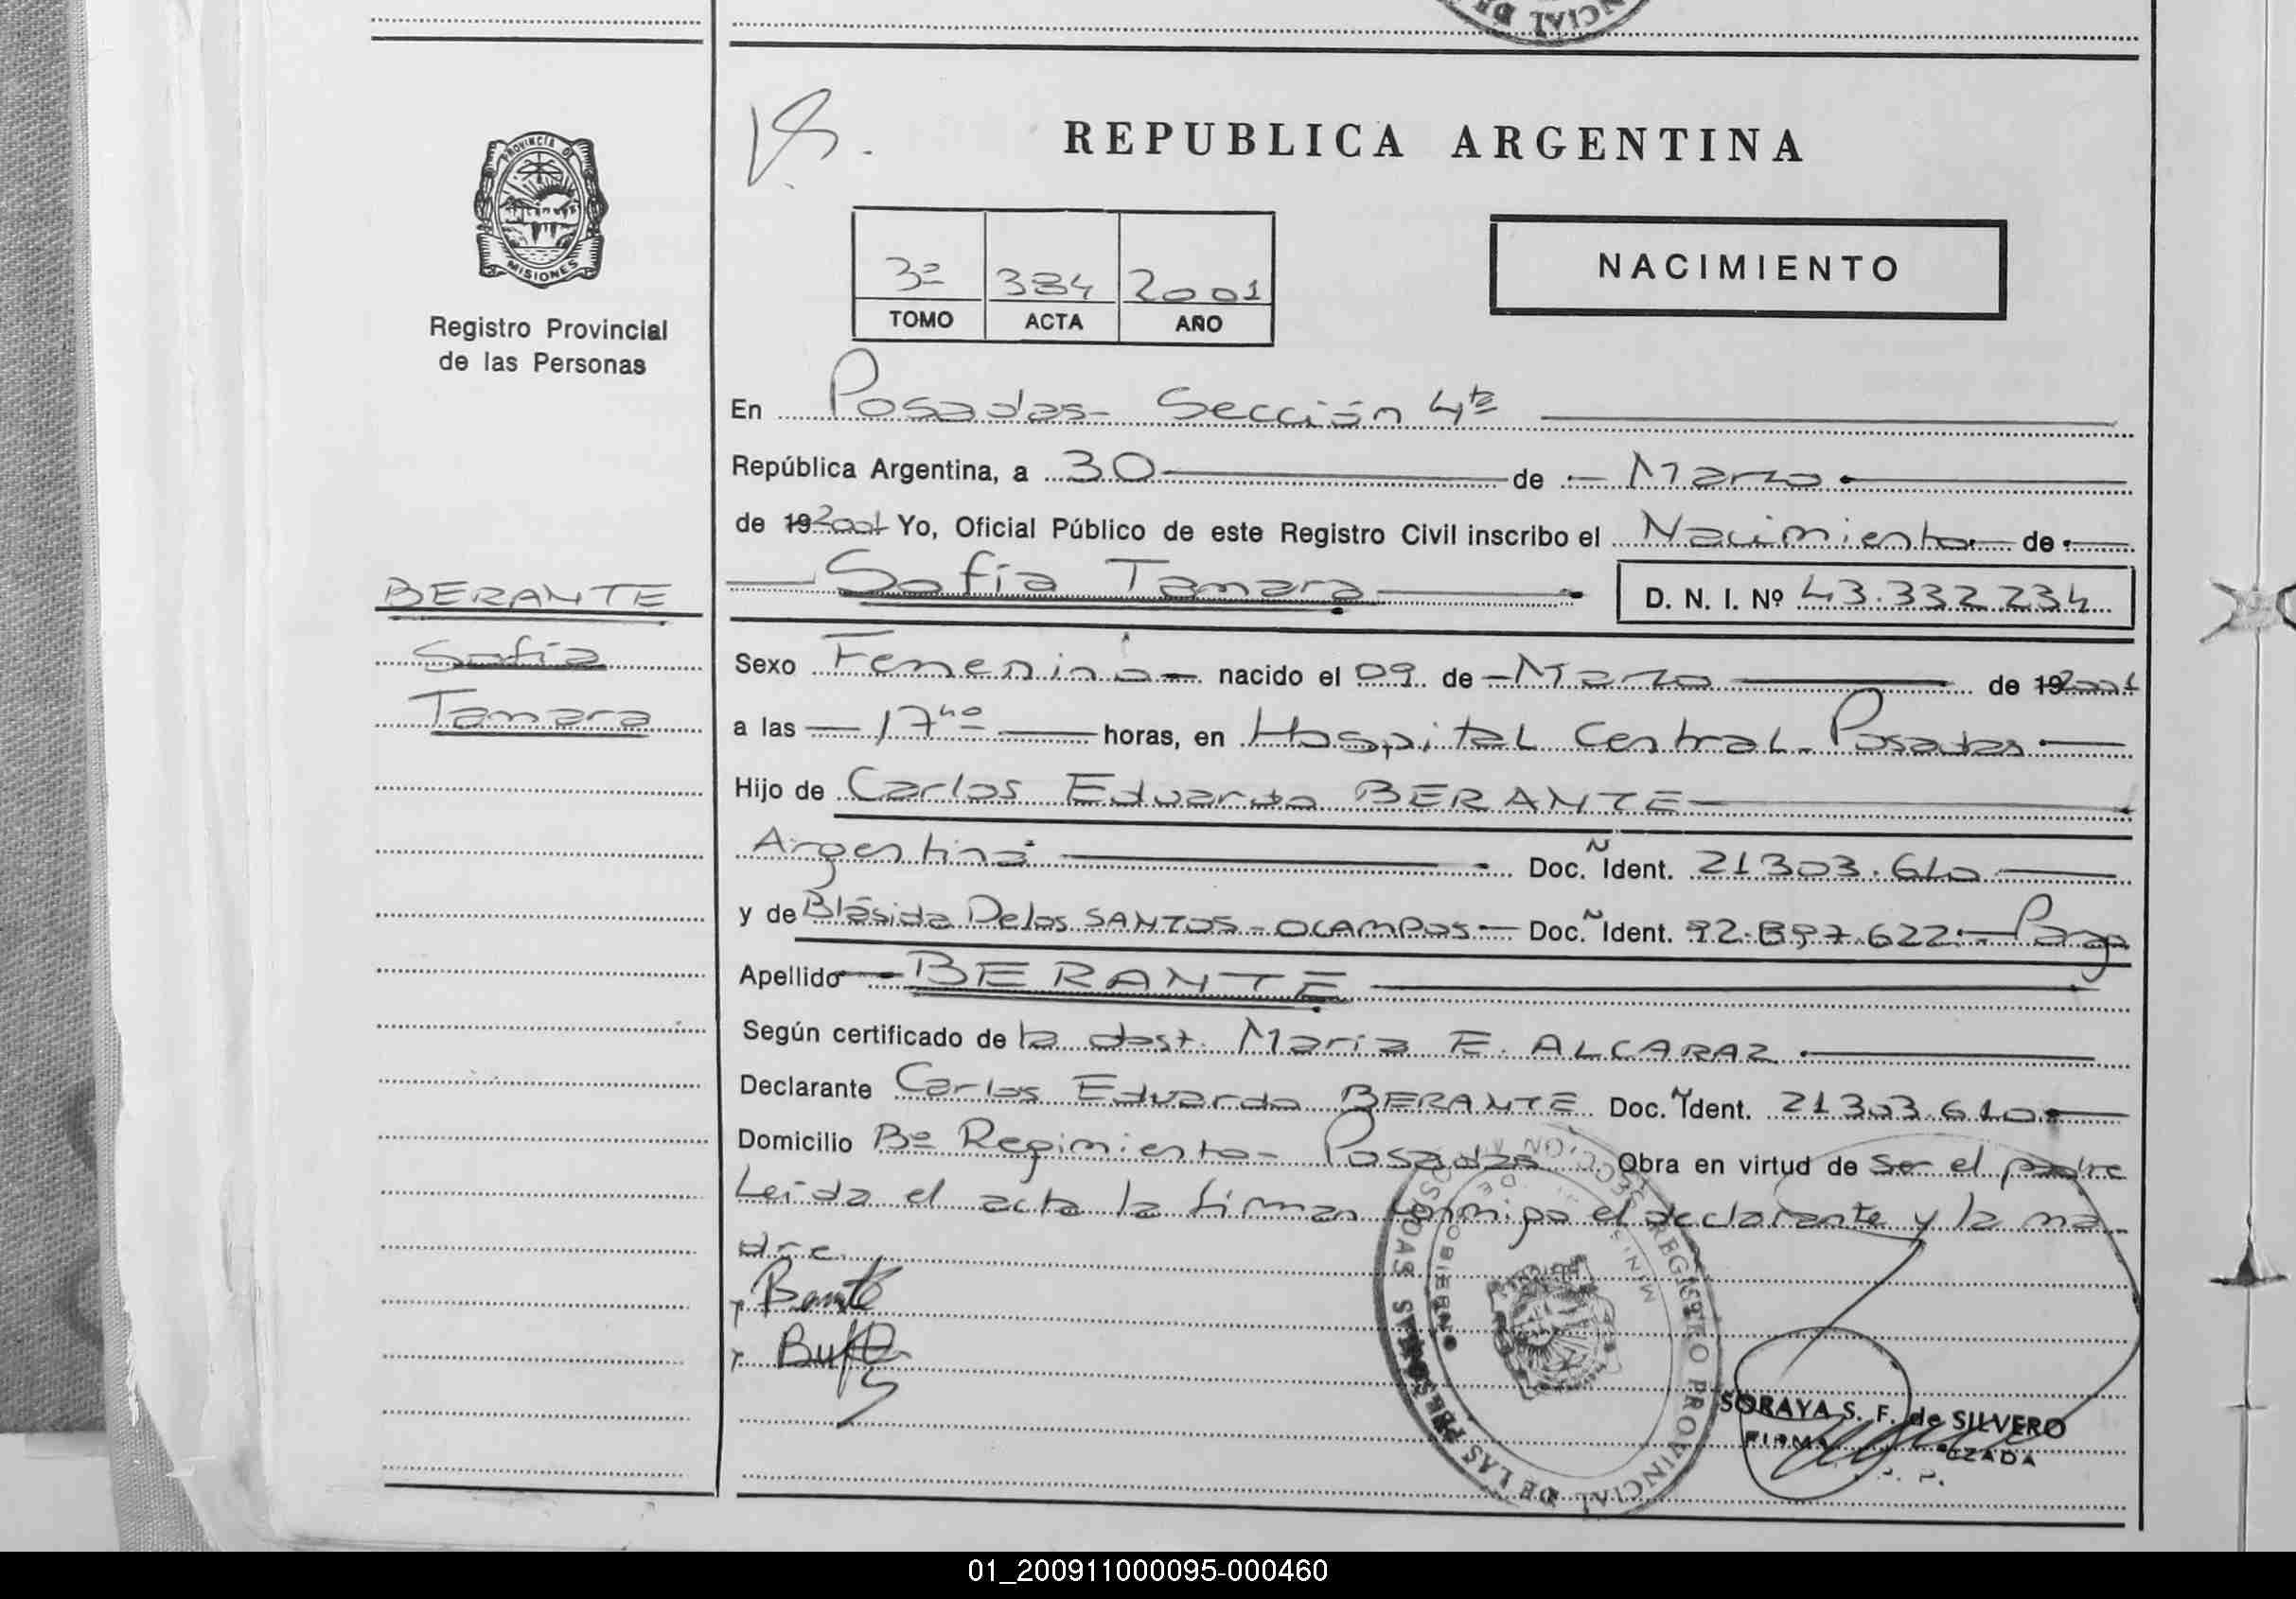 REPUBLICA ARGENTINA
PROVINCIA DE
MISIONES
Registro Provincial
de las Personas
3º 384 2001
TOMO ACTA AÑO
NACIMIENTO
En Posadas- Sección 4ta
República Argentina, a 30 de Marzo
de 19 2001 Yo, Oficial Público de este Registro Civil inscribo el Nacimiento de
Sofía Tamara D. N. I. Nº 43.332.234
BERANTE
Sofía
Tamara
Sexo Femenino nacido el 09 de Marzo de 19 2001
a las 17 horas, en Hospital Central- Posadas
Hijo de Carlos Eduardo BERANTE
Argentino Doc. Ident. 21303.610
y de Blásida Delos SANTOS-OCAMPOS- Doc. Ident. 92.897.622
Apellido BERANTE
Según certificado de la obst. María E. ALCARAZ
Declarante Carlos Eduardo BERANTE Doc. Ident. 21303.610
Domicilio Bº Regimiento- Posadas Obra en virtud de ser el padre
Leída el acta la firman conmigo el declarante y la ma-
dre.
REGISTRO PROVINCIAL DE LAS PERSONAS
SORAYA S. F. de SILVERO
01_200911000095-000460